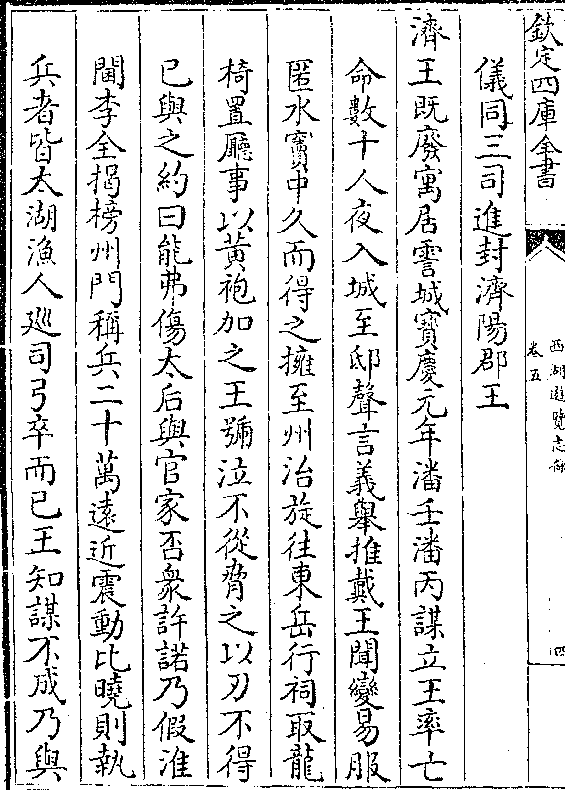 欽定四庫全書
西湖遊覽志餘
卷五
四
儀同三司進封濟陽郡王
濟王既廢寓居霅城寶慶元年潘壬潘丙謀立王率亡
命數十人夜入城至邸聲言義舉推戴王聞變易服
匿水竇中久而得之擁至州治旋往東岳行祠取龍
椅置廳事以黃袍加之王號泣不從脅之以刃不得
已與之約曰能弗傷太后與官家否衆許諾乃假淮
閫李全揭榜州門稱兵二十萬遠近震動比曉則執
兵者皆太湖漁人廵司弓卒而已王知謀不成乃與